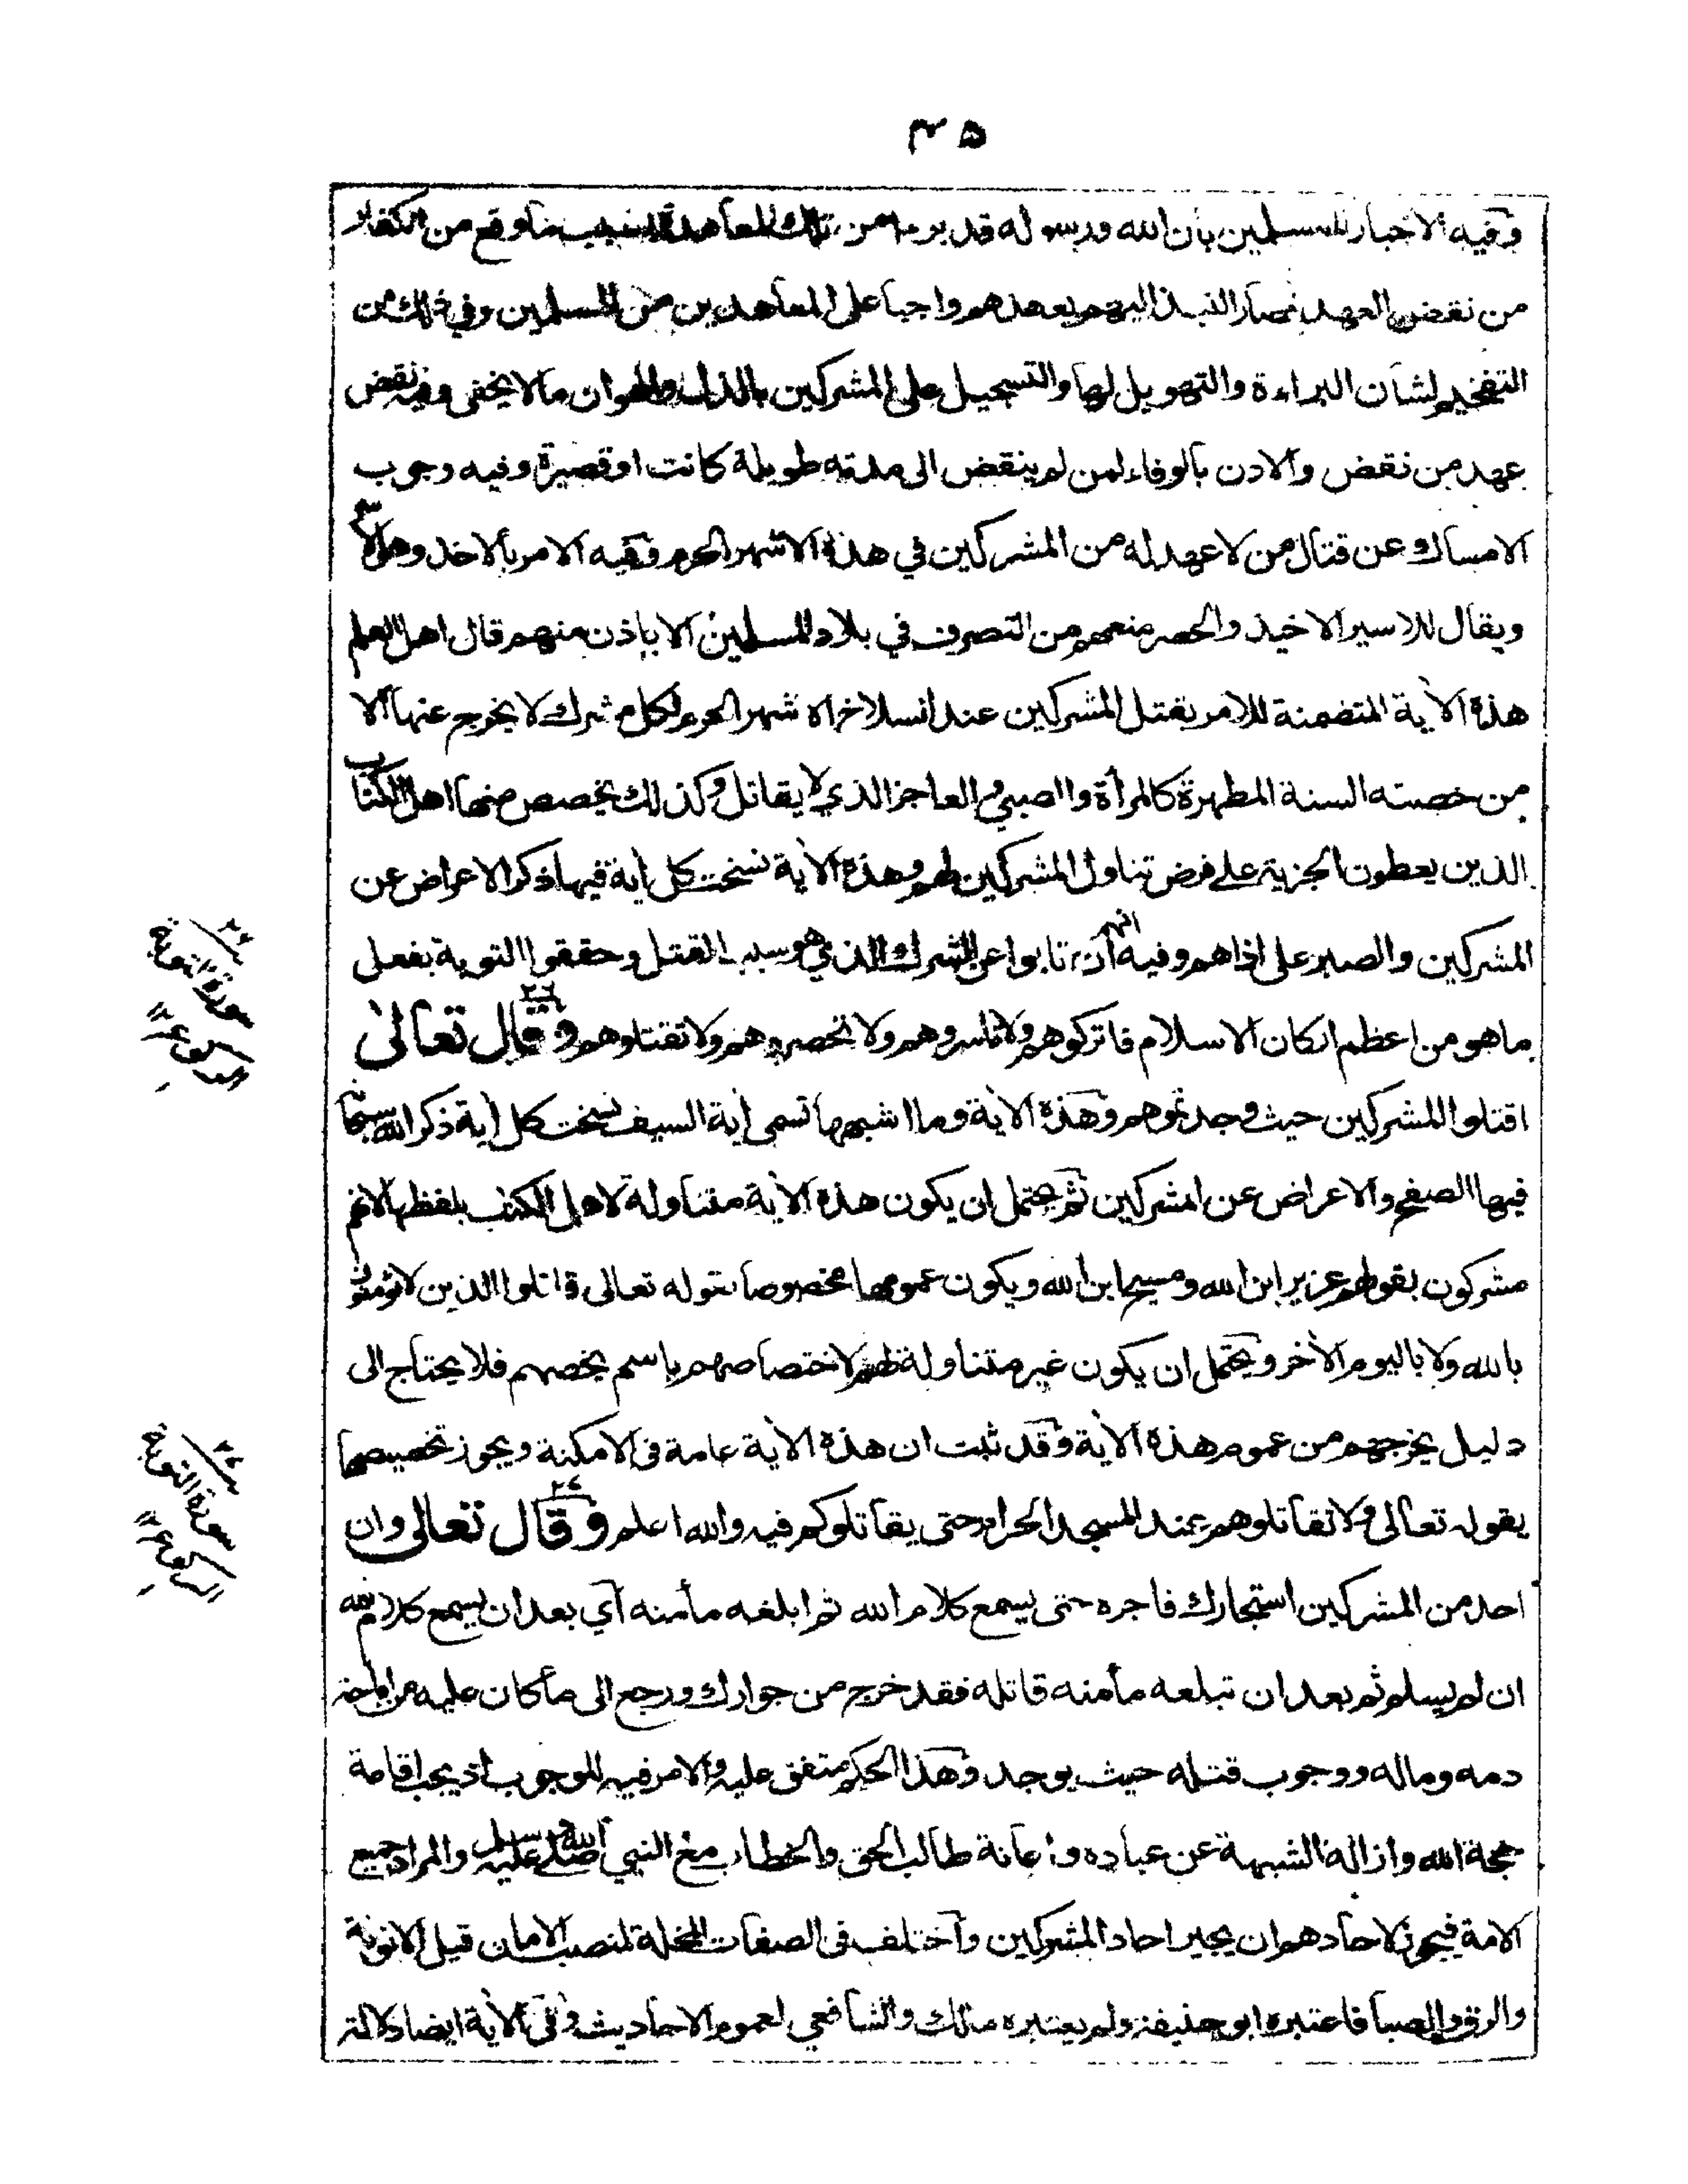 ٣٥
وفيه الاخبار للمسلمين بان الله ورسوله قد برءا من تلك المعاهدة بسبب ما وقع من الكفار
من نقض العهد فصار النبذ اليهم بعهدهم واجبا على المعاهدين من المسلمين وفي ذلك من
التفخيم لشان البراءة والتهويل لها والتسجيل على المشركين بالذل والهوان ما لا يخفى وفيه نقض
عهد من نقض والاذن بالوفاء لمن لم ينقض الى مدته طويلة كانت او قصيرة وفيه وجوب
الامساك عن قتال من لا عهد له من المشركين في هذه الاشهر الحرم وفيه الامر بالاخذ وهو الاسر
ويقال للاسير الاخيذ والحصر منعهم من التصرف في بلاد المسلمين الا باذن منهم قال اهل العلم
هذه الاية المتضمنة للامر بقتل المشركين عند انسلاخ الاشهر الحرم لكل مشرك لا يخرج عنها الا
من خصته السنة المطهرة كالمرأة والصبي والعاجز الذي لا يقاتل وكذلك تخصص منها اهل الكتاب
الذين يعطون الجزية على فرض تناول المشركين لهم وهذه الاية نسخت كل اية فيها ذكر الاعراض عن
المشركين والصبر على اذاهم وفيه انهم ان تابوا عن الشرك الذي هو سبب القتل وحققوا التوبة بفعل
ما هو من اعظم اركان الاسلام فاتركوهم ولا تاسروهم ولا تحصروهم ولا تقتلوهم ٢٦ وقال تعالى
اقتلوا المشركين حيث وجدتموهم وهذه الاية وما اشبهها تسمى اية السيف نسخت كل اية ذكر الله سبحانه
فيها الصفح والاعراض عن المشركين ثم يحتمل ان يكون هذه الاية متناولة لاهل الكتب بلفظها لانهم
مشركون بقولهم عزير ابن الله ومسيح ابن الله ويكون عمومها مخصوصا بقوله تعالى قاتلوا الذين لا يؤمنون
بالله ولا باليوم الاخر ويحتمل ان يكون غير متناولة لهم لاختصاصهم باسم يخصهم فلا يحتاج الى
دليل يخرجهم من عموم هذه الاية وقد ثبت ان هذه الاية عامة في الامكنة ويجوز تخصيصها
بقوله تعالى ولا تقاتلوهم عند المسجد الحرام حتى يقاتلوكم فيه والله اعلم ٢٧ وقال تعالى وان
احد من المشركين استجارك فاجره حتى يسمع كلام الله ثم ابلغه مأمنه اي بعد ان يسمع كلام الله
ان لم يسلم ثم بعد ان تبلغه مأمنه قاتله فقد خرج من جوارك ورجع الى ما كان عليه من اباحة
دمه وماله ووجوب قتله حيث يوجد وهذا الحكم متفق عليه والامر فيه للوجوب اذ يجب اقامة
حجة الله وازالة الشبهة عن عباده واعانة طالب الحق والخطاب مع النبي صلى الله عليه وسلم والمراد جميع
الامة فيجوز لاحادهم ان يجير احاد المشركين واختلف في الصفات المخلة لمنصب الامان قيل الانوثة
والرق والصبا فاعتبره ابو حنيفة ولم يعتبره مالك والشافعي لعموم الاحاديث وفي الاية ايضا دلالة
٢٦
سورة التوبة
الركوع
٢٧
سورة التوبة
الركوع